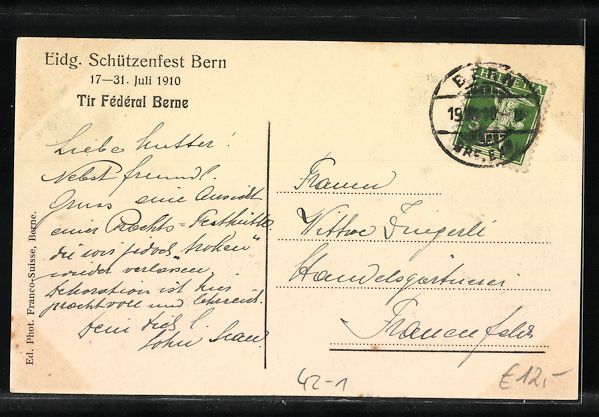 Eidg. Schützenfest Bern
17—31. Juli 1910
Tir Fédéral Berne
Liebe Mutter!
Nebst freundl.
Gruss eine Ansicht
einer Prachts-Festhütte
die wir jedoch "trocken"
wieder verlassen.
Dekoration ist hier
prachtvoll und
Dein
Ed. Phot. Franco-Suisse, Berne.
BERN
HELVETIA
Frauen
Wittwe Zingerli
Handelsgärtnerei
Frauenfeld
42-1
€12,-